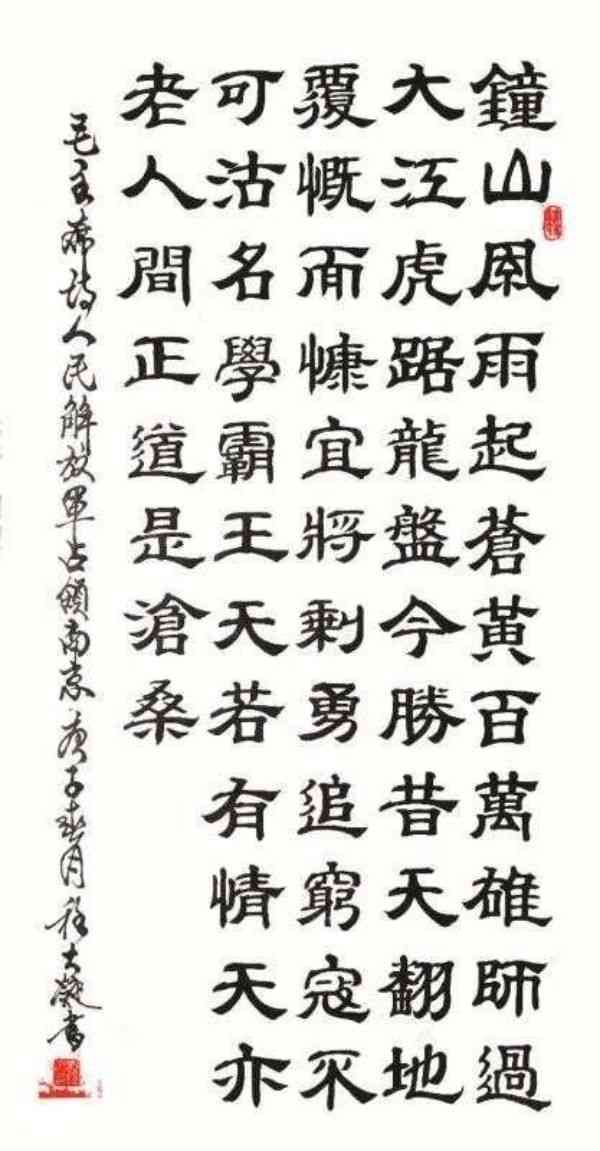 鐘山風雨起蒼黃百萬雄師過
大江虎踞龍盤今勝昔天翻地
覆慨而慷宜將剩勇追窮寇不
可沽名學霸王天若有情天亦
老人間正道是滄桑
毛主席詩人民解放軍占領南京庚子春月大凝書